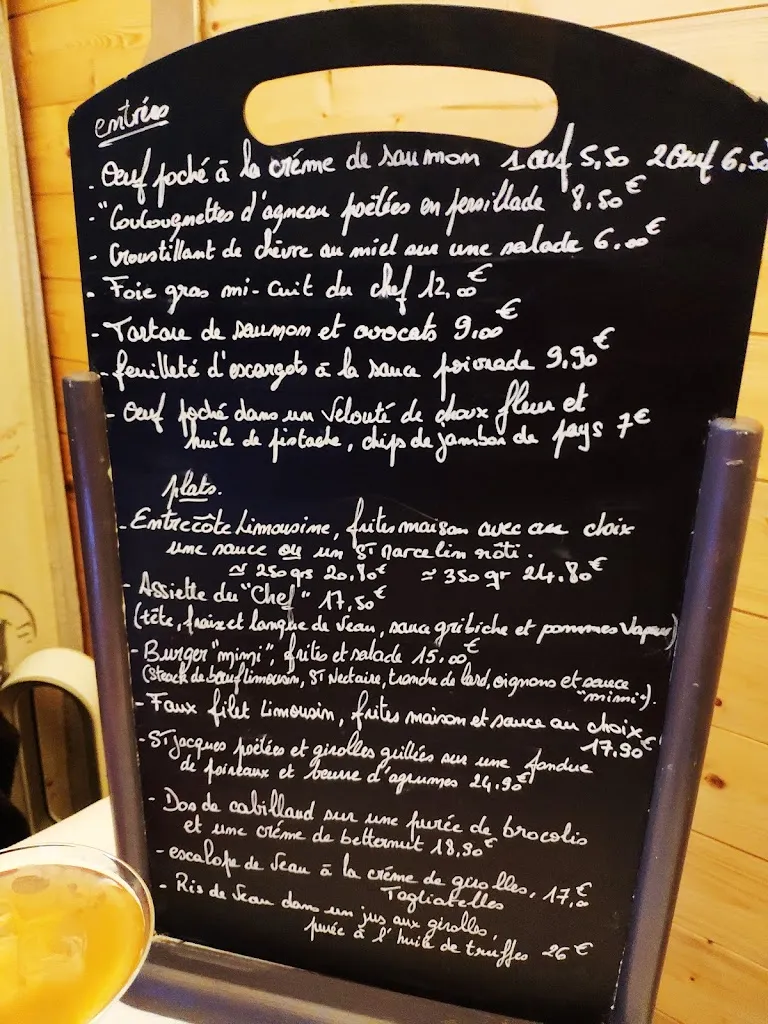 entrées
. Oeuf poché à la crème de saumon 1 oeuf 5,50 2 Oeuf 6,50
- "Coulougnettes d'agneau poêlées en persillade 8,50€
- Croustillant de chèvre au miel sur une salade 6.00€
- Foie gras mi-cuit du chef 12,00€
- Tartare de saumon et avocats 9,00€
- feuilleté d'escargots à la sauce poivrade 9,90€
- Oeuf poché dans un Velouté de choux fleur et
huile de pistache, chips de jambon de pays 7€
plats.
- Entrecôte Limousine, frites maison avec au choix
une sauce ou un ST Marcelin rôti.
≃ 250 grs 20,80€ ≃ 350 gr 24.80€
- Assiette du "Chef" 17,50€
(tête, fraise et langue de Veau, sauce gribiche et pommes Vapeur)
- Burger "mimi", frites et salade 15.00€
(steack de boeuf limousin, ST Nectaire, tranche de lard, oignons et sauce
"mimi").
- Faux filet Limousin, frites maison et sauce au choix
17,90€
- ST Jacques poêlées et girolles grillées sur une fondue
de poireaux et beurre d'agrumes 24,90€
- Dos de cabillaud sur une purée de brocolis
et une crème de betternut 18,90€
- escalope de Veau à la crème de girolles, 17,00€
Tagliatelles
- Ris de Veau dans un jus aux girolles,
purée à l'huile de truffes 26€